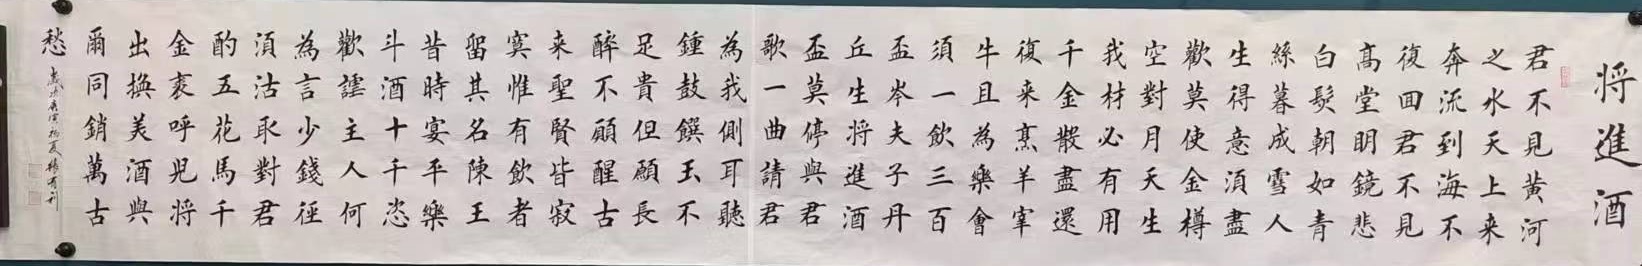 将進酒
君不見黃河
之水天上来
奔流到海不
復回君不見
高堂明鏡悲
白髮朝如青
絲暮成雪人
生得意須盡
歡莫使金樽
空對月天生
我材必有用
千金散盡還
復来烹羊宰
牛且為樂會
須一飲三百
盃岑夫子丹
丘生将進酒
盃莫停與君
歌一曲請君
為我側耳聽
鍾鼓饌玉不
足貴但願長
醉不願醒古
来聖賢皆寂
寞惟有飲者
留其名陳王
昔時宴平樂
斗酒十千恣
歡謔主人何
為言少錢徑
須沽取對君
酌五花馬千
金裘呼兒将
出換美酒與
爾同銷萬古
愁